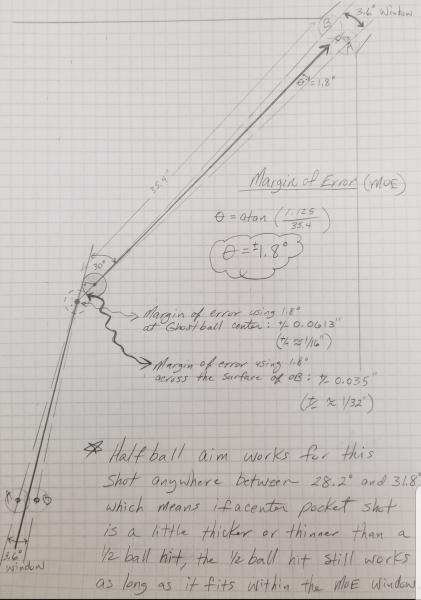 B
3.6° Window
θ = 1.8°
35.4"
Margin of Error (MOE)
θ = atan (1.125 / 35.4)
θ = ± 1.8°
30°
Margin of error using 1.8°
at Ghostball center: +/- 0.0613"
(+/- ≈ 1/16")
Margin of error using 1.8°
across the surface of OB: +/- 0.035"
(+/- ≈ 1/32")
☆ Half ball aim works for this
shot anywhere between 28.2° and 31.8°
which means if a center pocket shot
is a little thicker or thinner than a
1/2 ball hit, the 1/2 ball hit still works
as long as it fits within the MOE window
A
B
3.6°
window